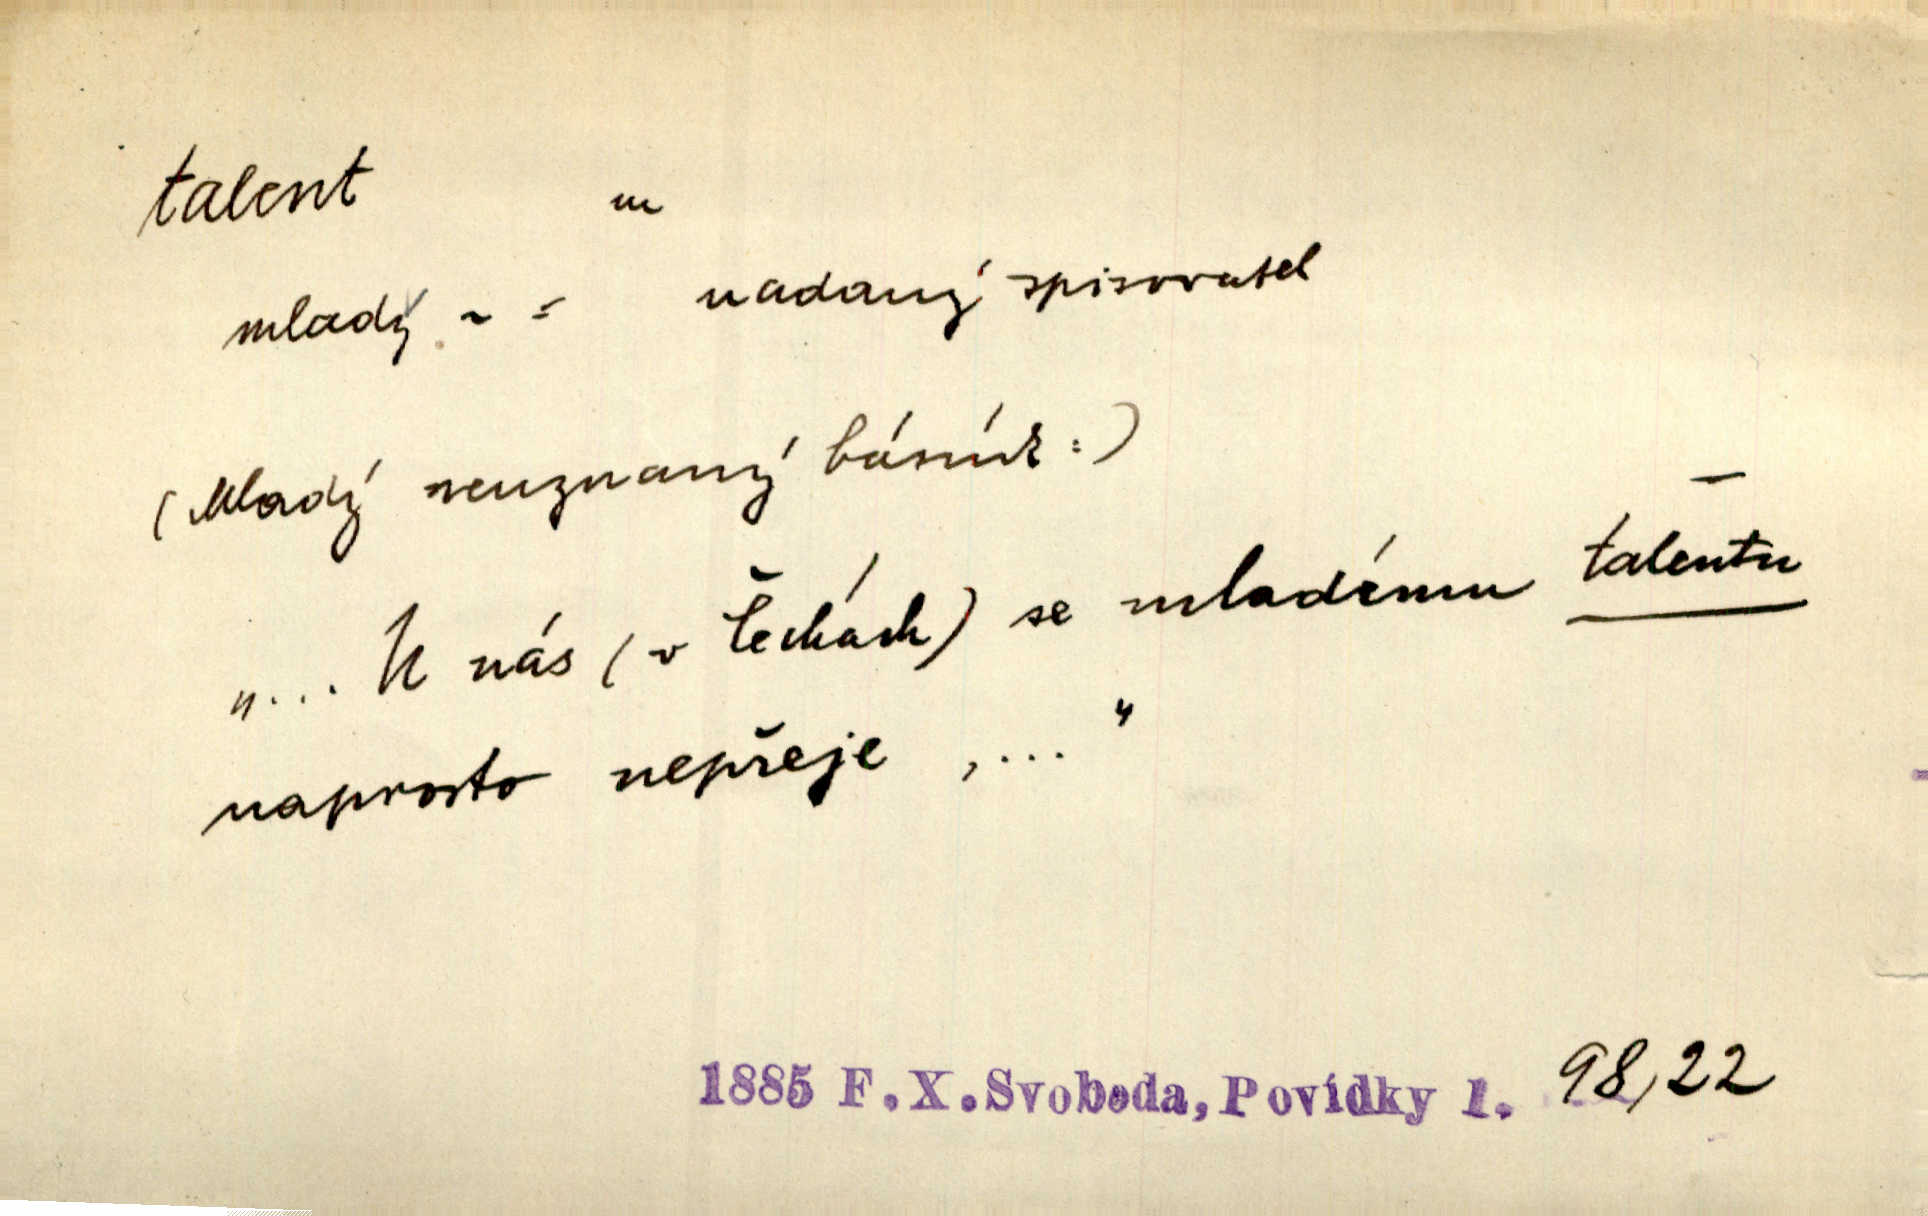 talent m
mladý ~ = nadaný spisovatel
(Mladý neuznaný básník:)
„... U nás (v Čechách) se mladému talentu
naprosto nepřeje ,... "
1885 F.X.Svoboda, Povídky 1. 98,22